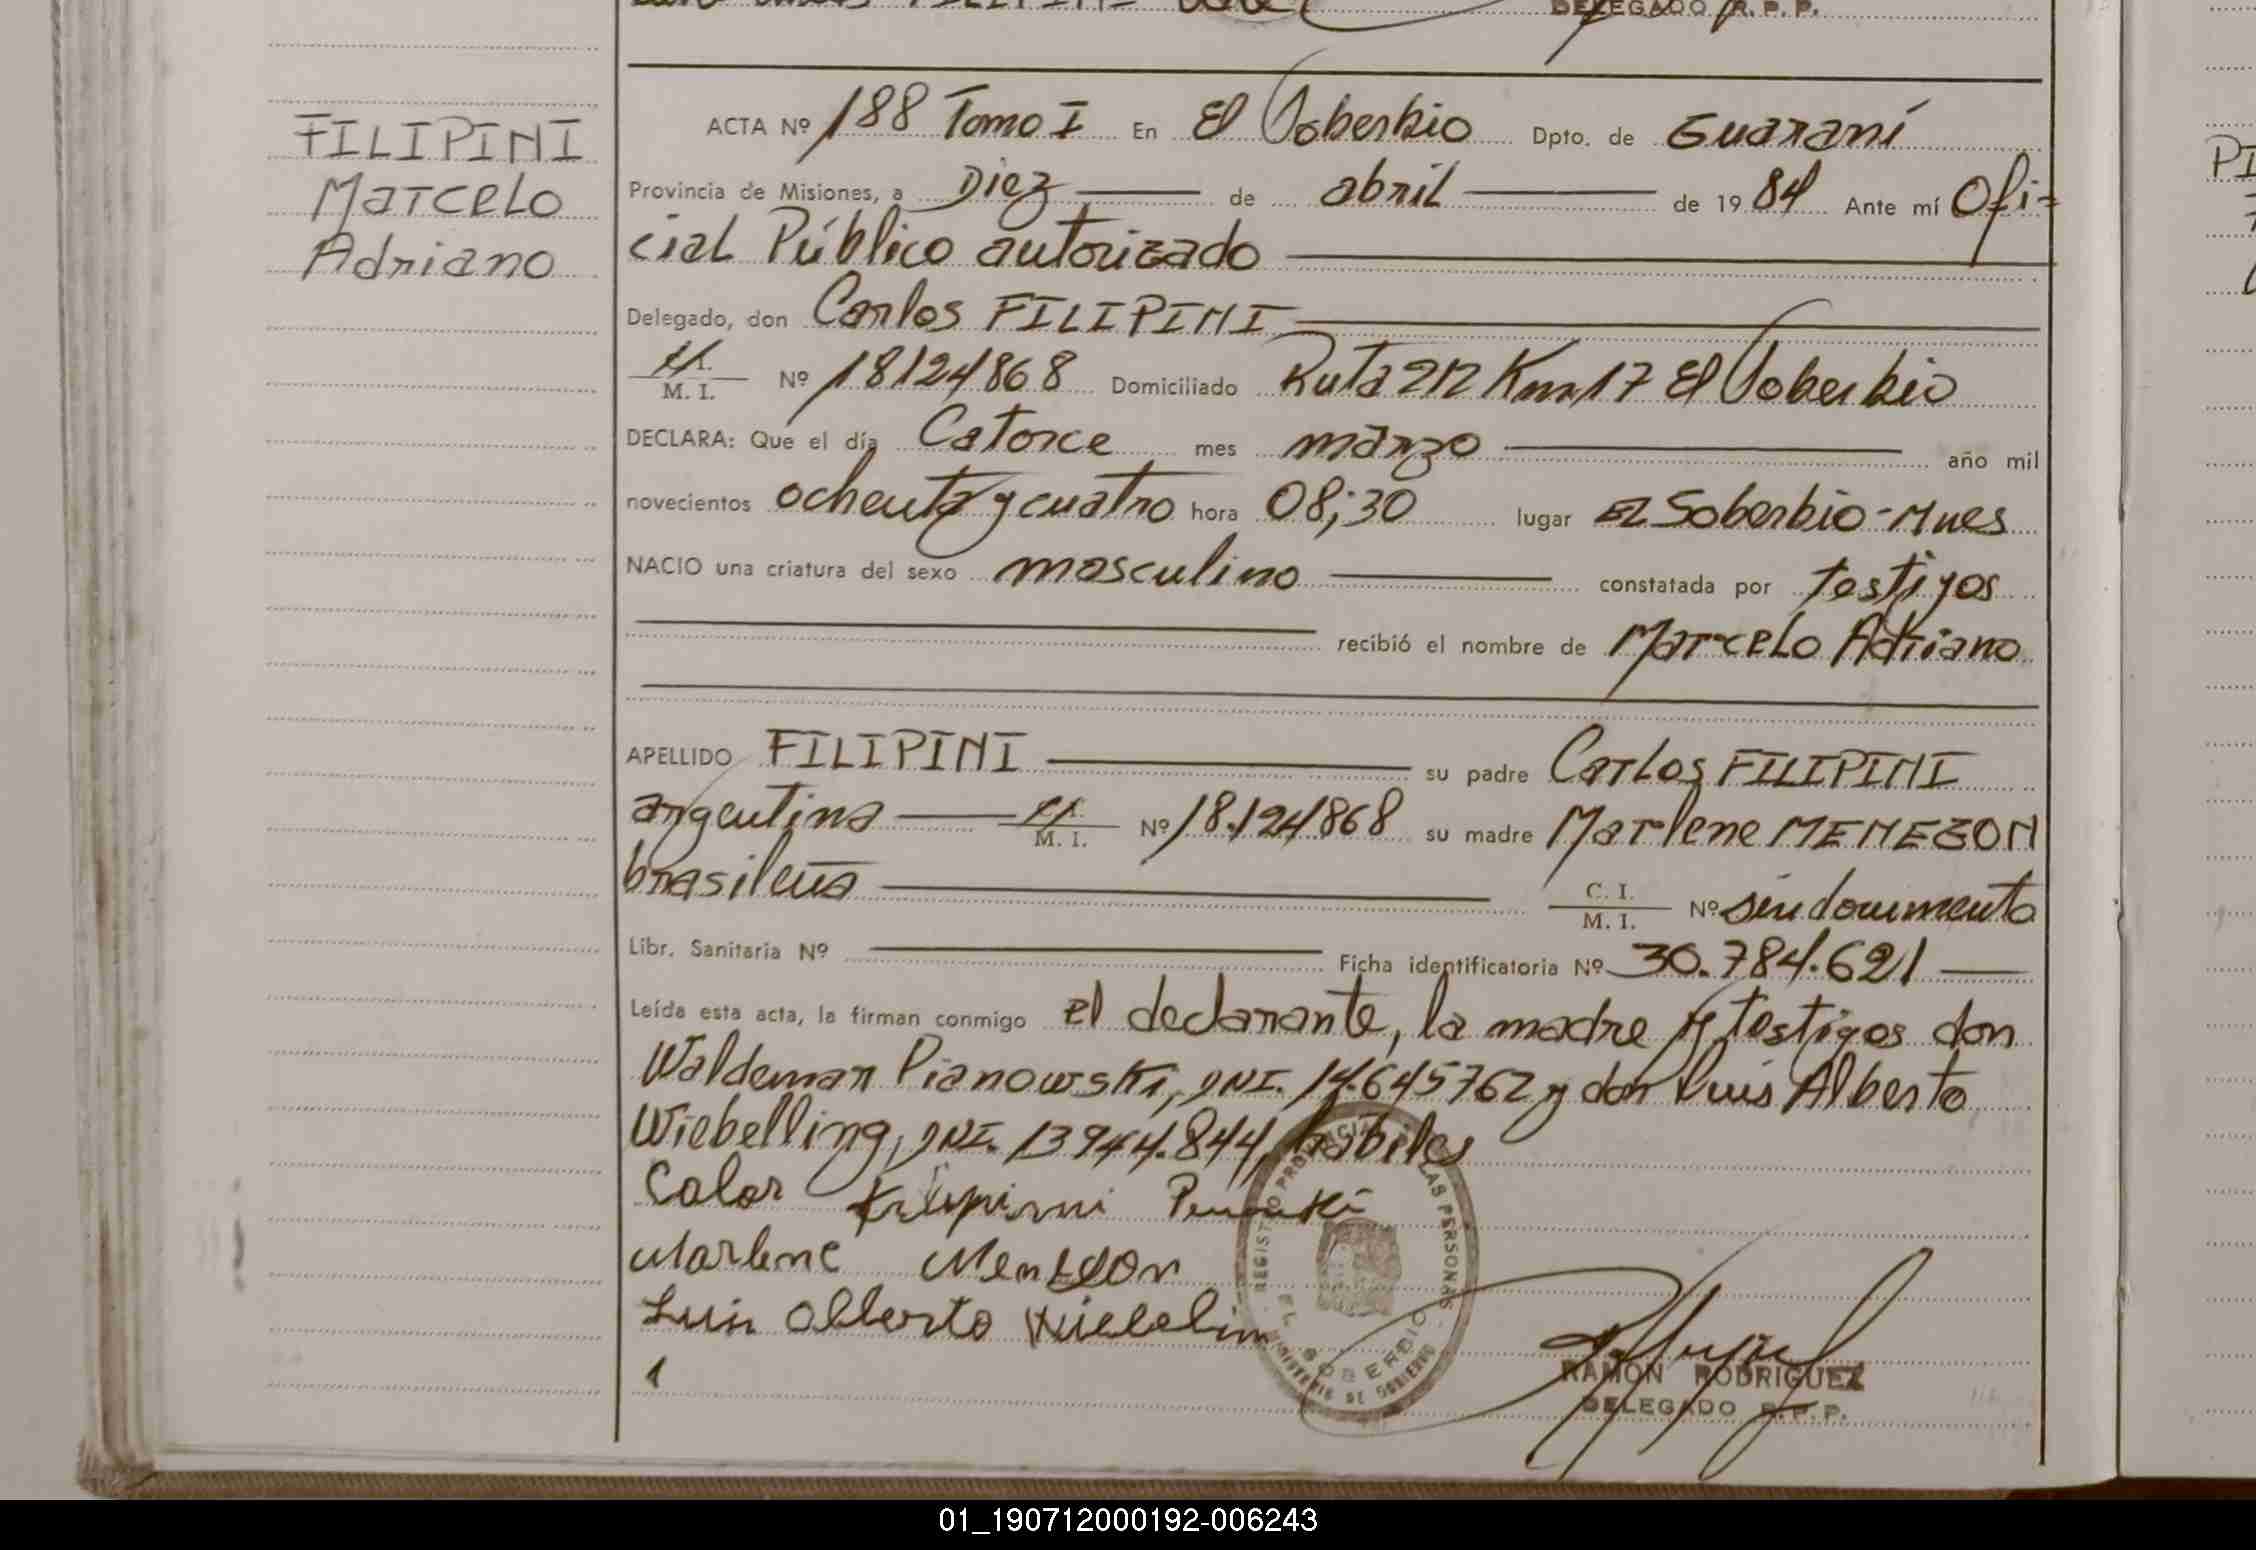 DELEGADO R. P. P.
FILIPINI
Marcelo
Adriano
ACTA Nº 188 Tomo I En El Soberbio Dpto. de Guaraní
Provincia de Misiones, a Diez de abril de 1984 Ante mí Ofi=
cial Público autorizado
Delegado, don Carlos FILIPINI
M. I. Nº 18124868 Domiciliado Ruta 212 Km 17 El Soberbio
DECLARA: Que el día Catorce mes marzo año mil
novecientos ochenta y cuatro hora 08;30 lugar El Soberbio-Mnes
NACIO una criatura del sexo masculino constatada por testigos
recibió el nombre de Marcelo Adriano
APELLIDO FILIPINI su padre Carlos FILIPINI
argentina M. I. Nº 18.124868 su madre Marlene MENEZON
brasileña C. I. M. I. Nº sin documento
Libr. Sanitaria Nº Ficha identificatoria Nº 30.784.621
Leída esta acta, la firman conmigo el declarante, la madre y testigos don
Waldemar Pianowski, DNI. 14.645762 y don Luis Alberto
Wiebelling, DNI. 13944.844, hábiles
Calor Filipini
Marlene Menezon
Luis Alberto Wiebelin
REGISTRO PROVINCIAL DE LAS PERSONAS
EL SOBERBIO
MINISTERIO DE GOBIERNO
RAMON RODRIGUEZ
DELEGADO R. P. P.
01_190712000192-006243